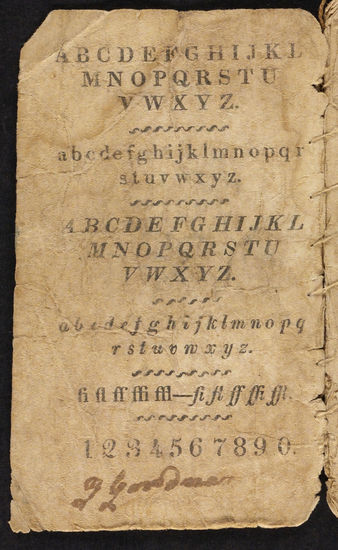 ABCDEFGHIJKL
MNOPQRSTU
VWXYZ.
abcdefghijklmnopqr
stuvwxyz.
ABCDEFGHIJKL
MNOPQRSTU
VWXYZ.
abcdefghijklmnopq
rstuvwxyz.
fi fl ff ffi ffl—fi fl ff ffi ffl.
1234567890.